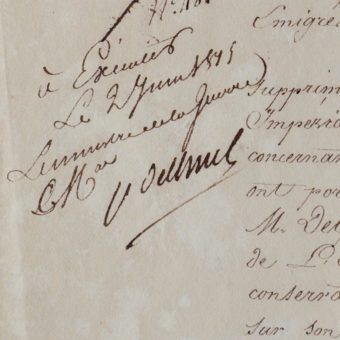 à Exécuter
Le 2 Juin 1815
Le ministre de la Guerre
M^al
Emigré
Supprim
Impéria
concernan
ont por
M. De
de L
conserra
sur son